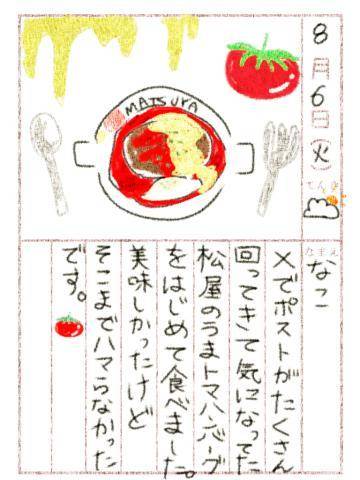 8月6日(火)
てんき
MATSUYA
なまえ
なこ
Xでポストがたくさん
回ってきて気になってた
松屋のうまトマハンバーグ
をはじめて食べました。
美味しかったけど
そこまでハマらなかった
です。